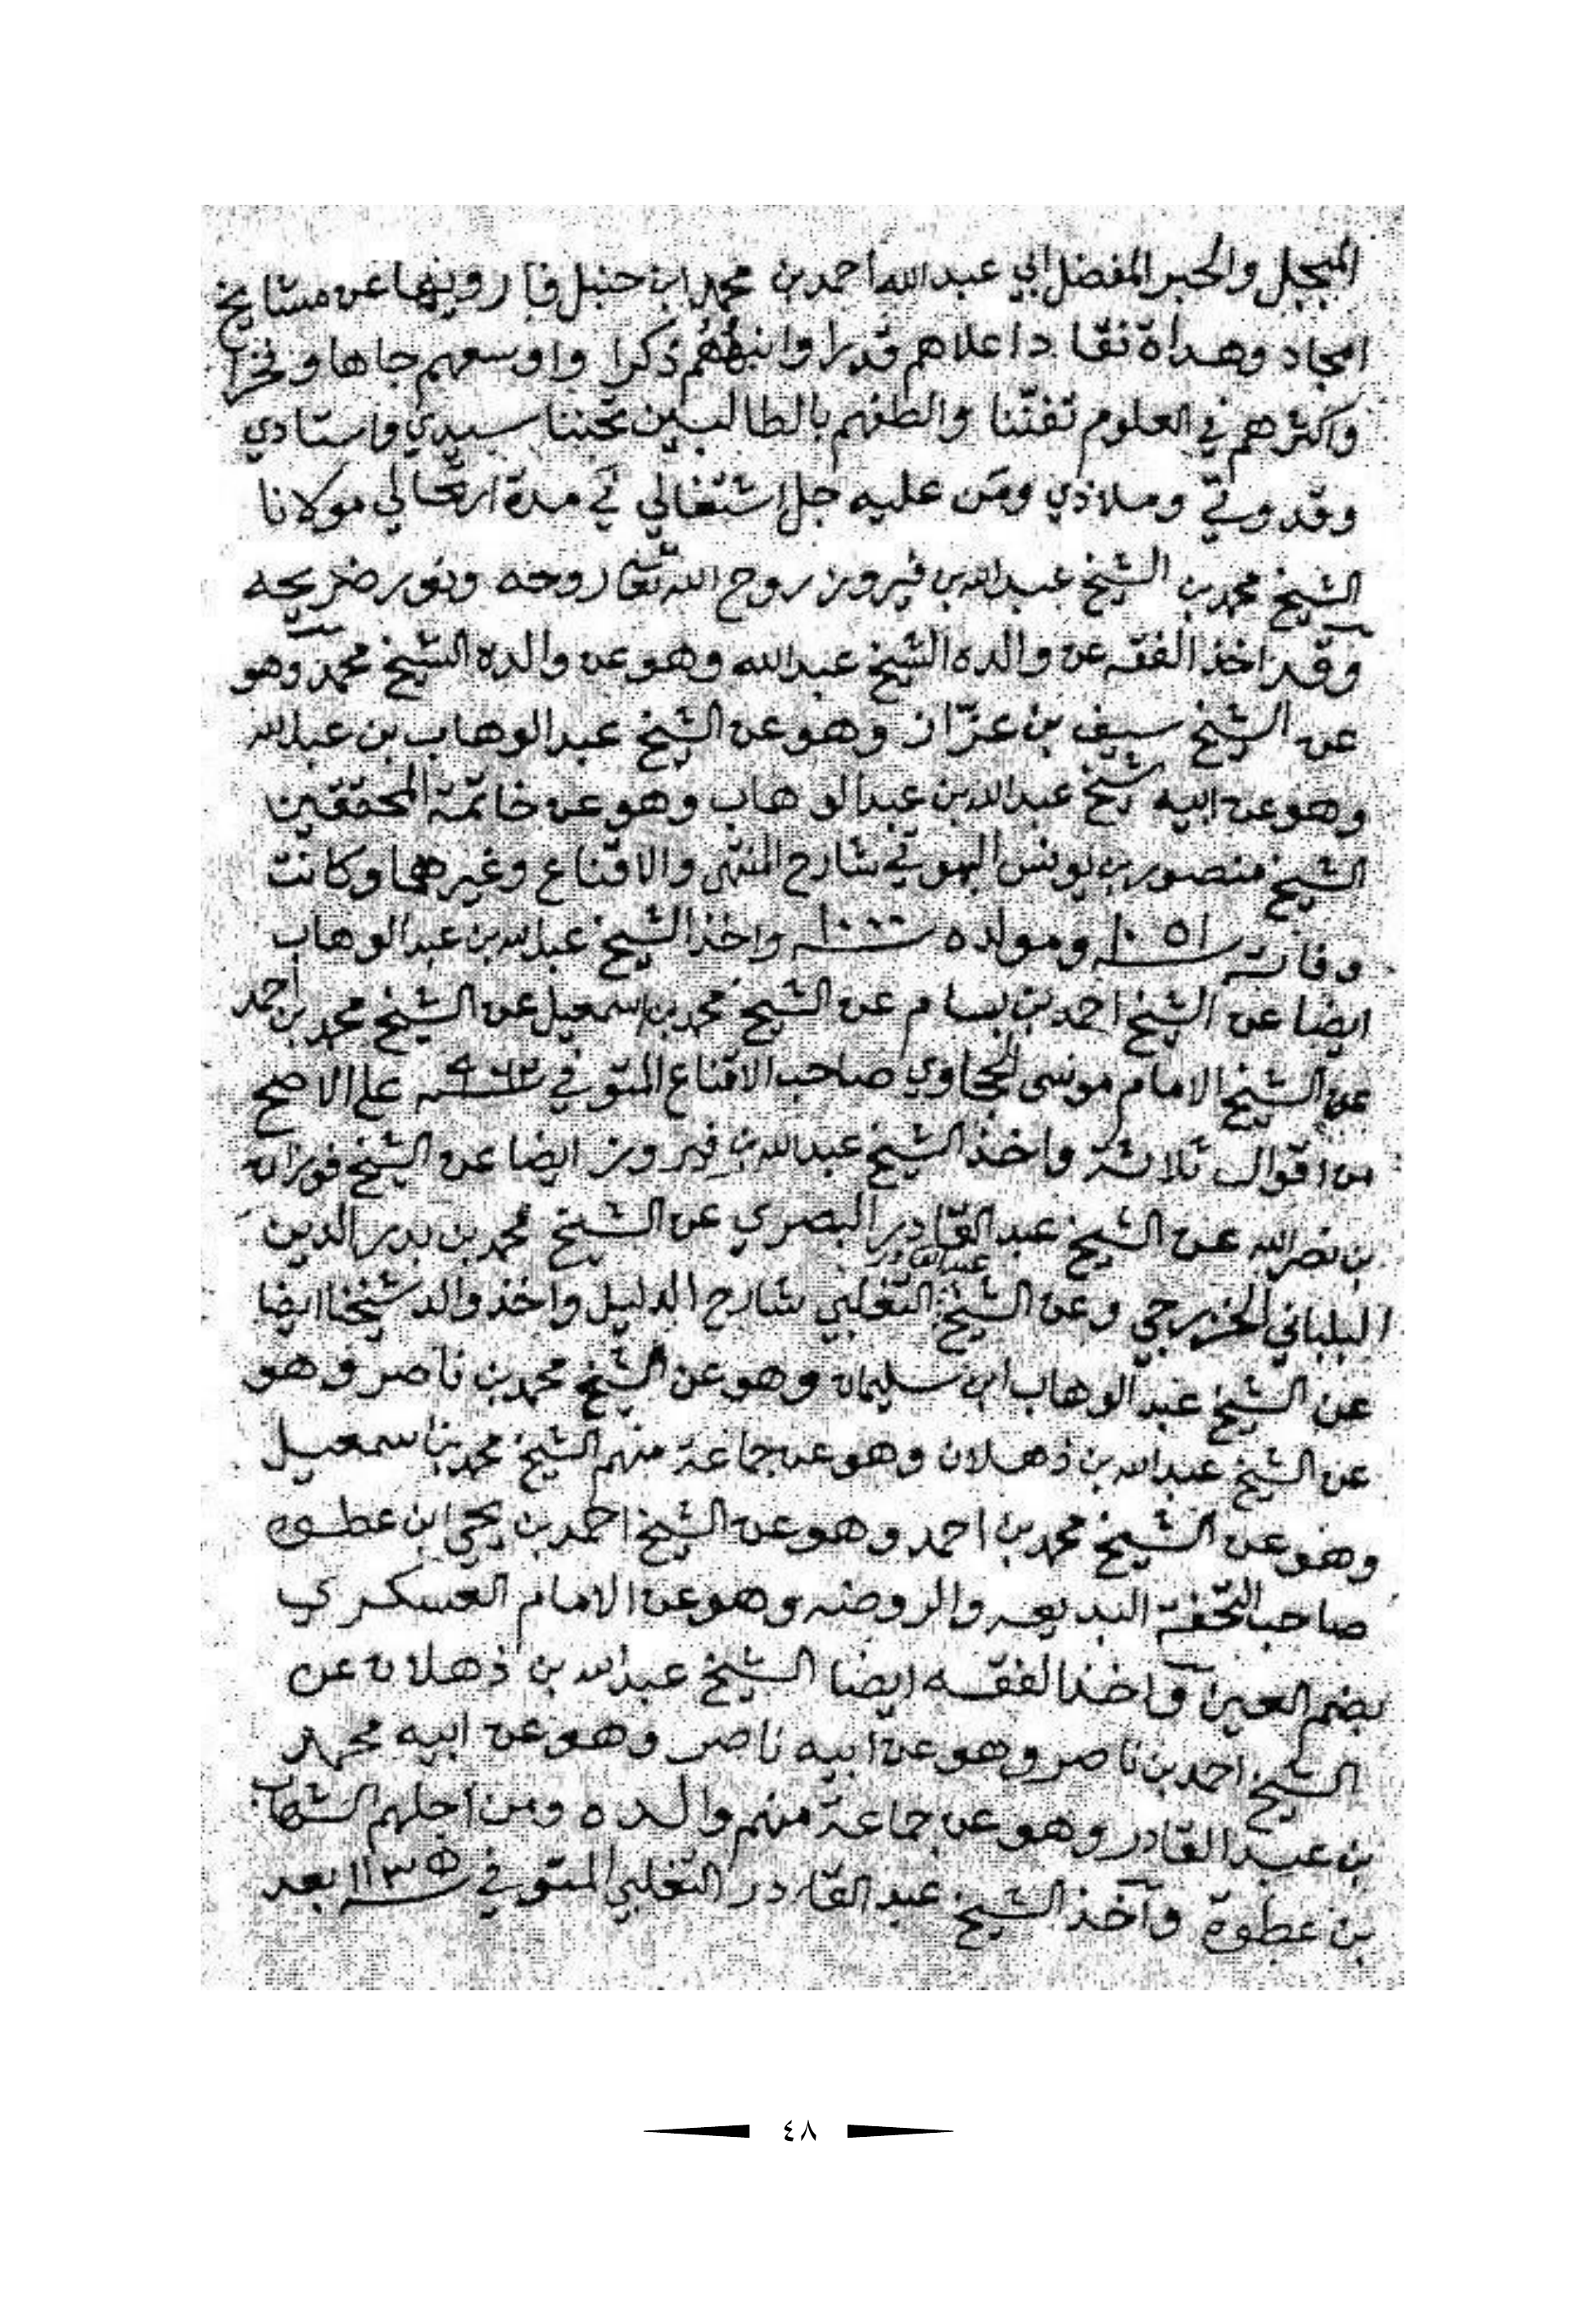 المبجل والحبر المفضل ابي عبدالله احمد بن محمد ابن حنبل فارويها عن مشايخ
امجاد وهداة نقاد اعلاهم قدرا وانبههم ذكرا واوسعهم جاها وفخرا
واكثرهم في العلوم تفننا والطفهم بالطالبين تحننا سيدي واستادي
وقدوتي وملاذي ومن عليه جل اشتغالي في مدة ارتحالي مولانا
الشيخ محمد بن الشيخ عبدالله بن فيروز روح الله تعا روحه ونور ضريحه
وقد اخذ الفقه عن والده الشيخ عبدالله وهو عن والده الشيخ محمد وهو
عن الشيخ سيف بن عزاز وهو عن الشيخ عبدالوهاب بن عبدالله
وهو عن ابيه شيخ عبدالله بن عبدالوهاب وهو عن خاتمة المحققين
الشيخ منصور بن يونس البهوتي شارح المنتهى والاقناع وغيرهما وكانت
وفاته سنة ١٠٥١ ومولده سنة ١٠٠٠ واخذ الشيخ عبدالله بن عبدالوهاب
ايضا عن الشيخ احمد بن بسام عن الشيخ محمد بن اسمعيل عن الشيخ محمد بن احمد
عن الشيخ الامام موسى الحجاوي صاحب الاقناع المتوفي سنة ٩٦٣ على الاصح
من اقوال ثلاثة واخذ الشيخ عبدالله بن فيروز ايضا عن الشيخ فوزان
بن نصرالله عن الشيخ عبدالقادر البصري عن الشيخ محمد بن بدرالدين
البلباني الخزرجي وعن الشيخ عبدالقادر التغلبي شارح الدليل واخذ والد شيخنا ايضا
عن الشيخ عبدالوهاب ابن سليمان وهو عن الشيخ محمد بن ناصر وهو
عن الشيخ عبدالله بن ذهلان وهو عن جماعة منهم الشيخ محمد بن اسمعيل
وهو عن الشيخ محمد بن احمد وهو عن الشيخ احمد بن يحي ابن عطوه
صاحب التحفة البديعه والروضه وهو عن الامام العسكري
بضم العين واخذ الفقه ايضا الشيخ عبدالله بن ذهلان عن
الشيخ احمد بن ناصر وهو عن ابيه ناصر وهو عن ابيه محمد
بن عبدالقادر وهو عن جماعة منهم والده ومن اجلهم الشهاب
بن عطوة وآخذ الشيخ عبدالقادر التغلبي المتوفي سنة ١١٣٥ بعد
٤٨